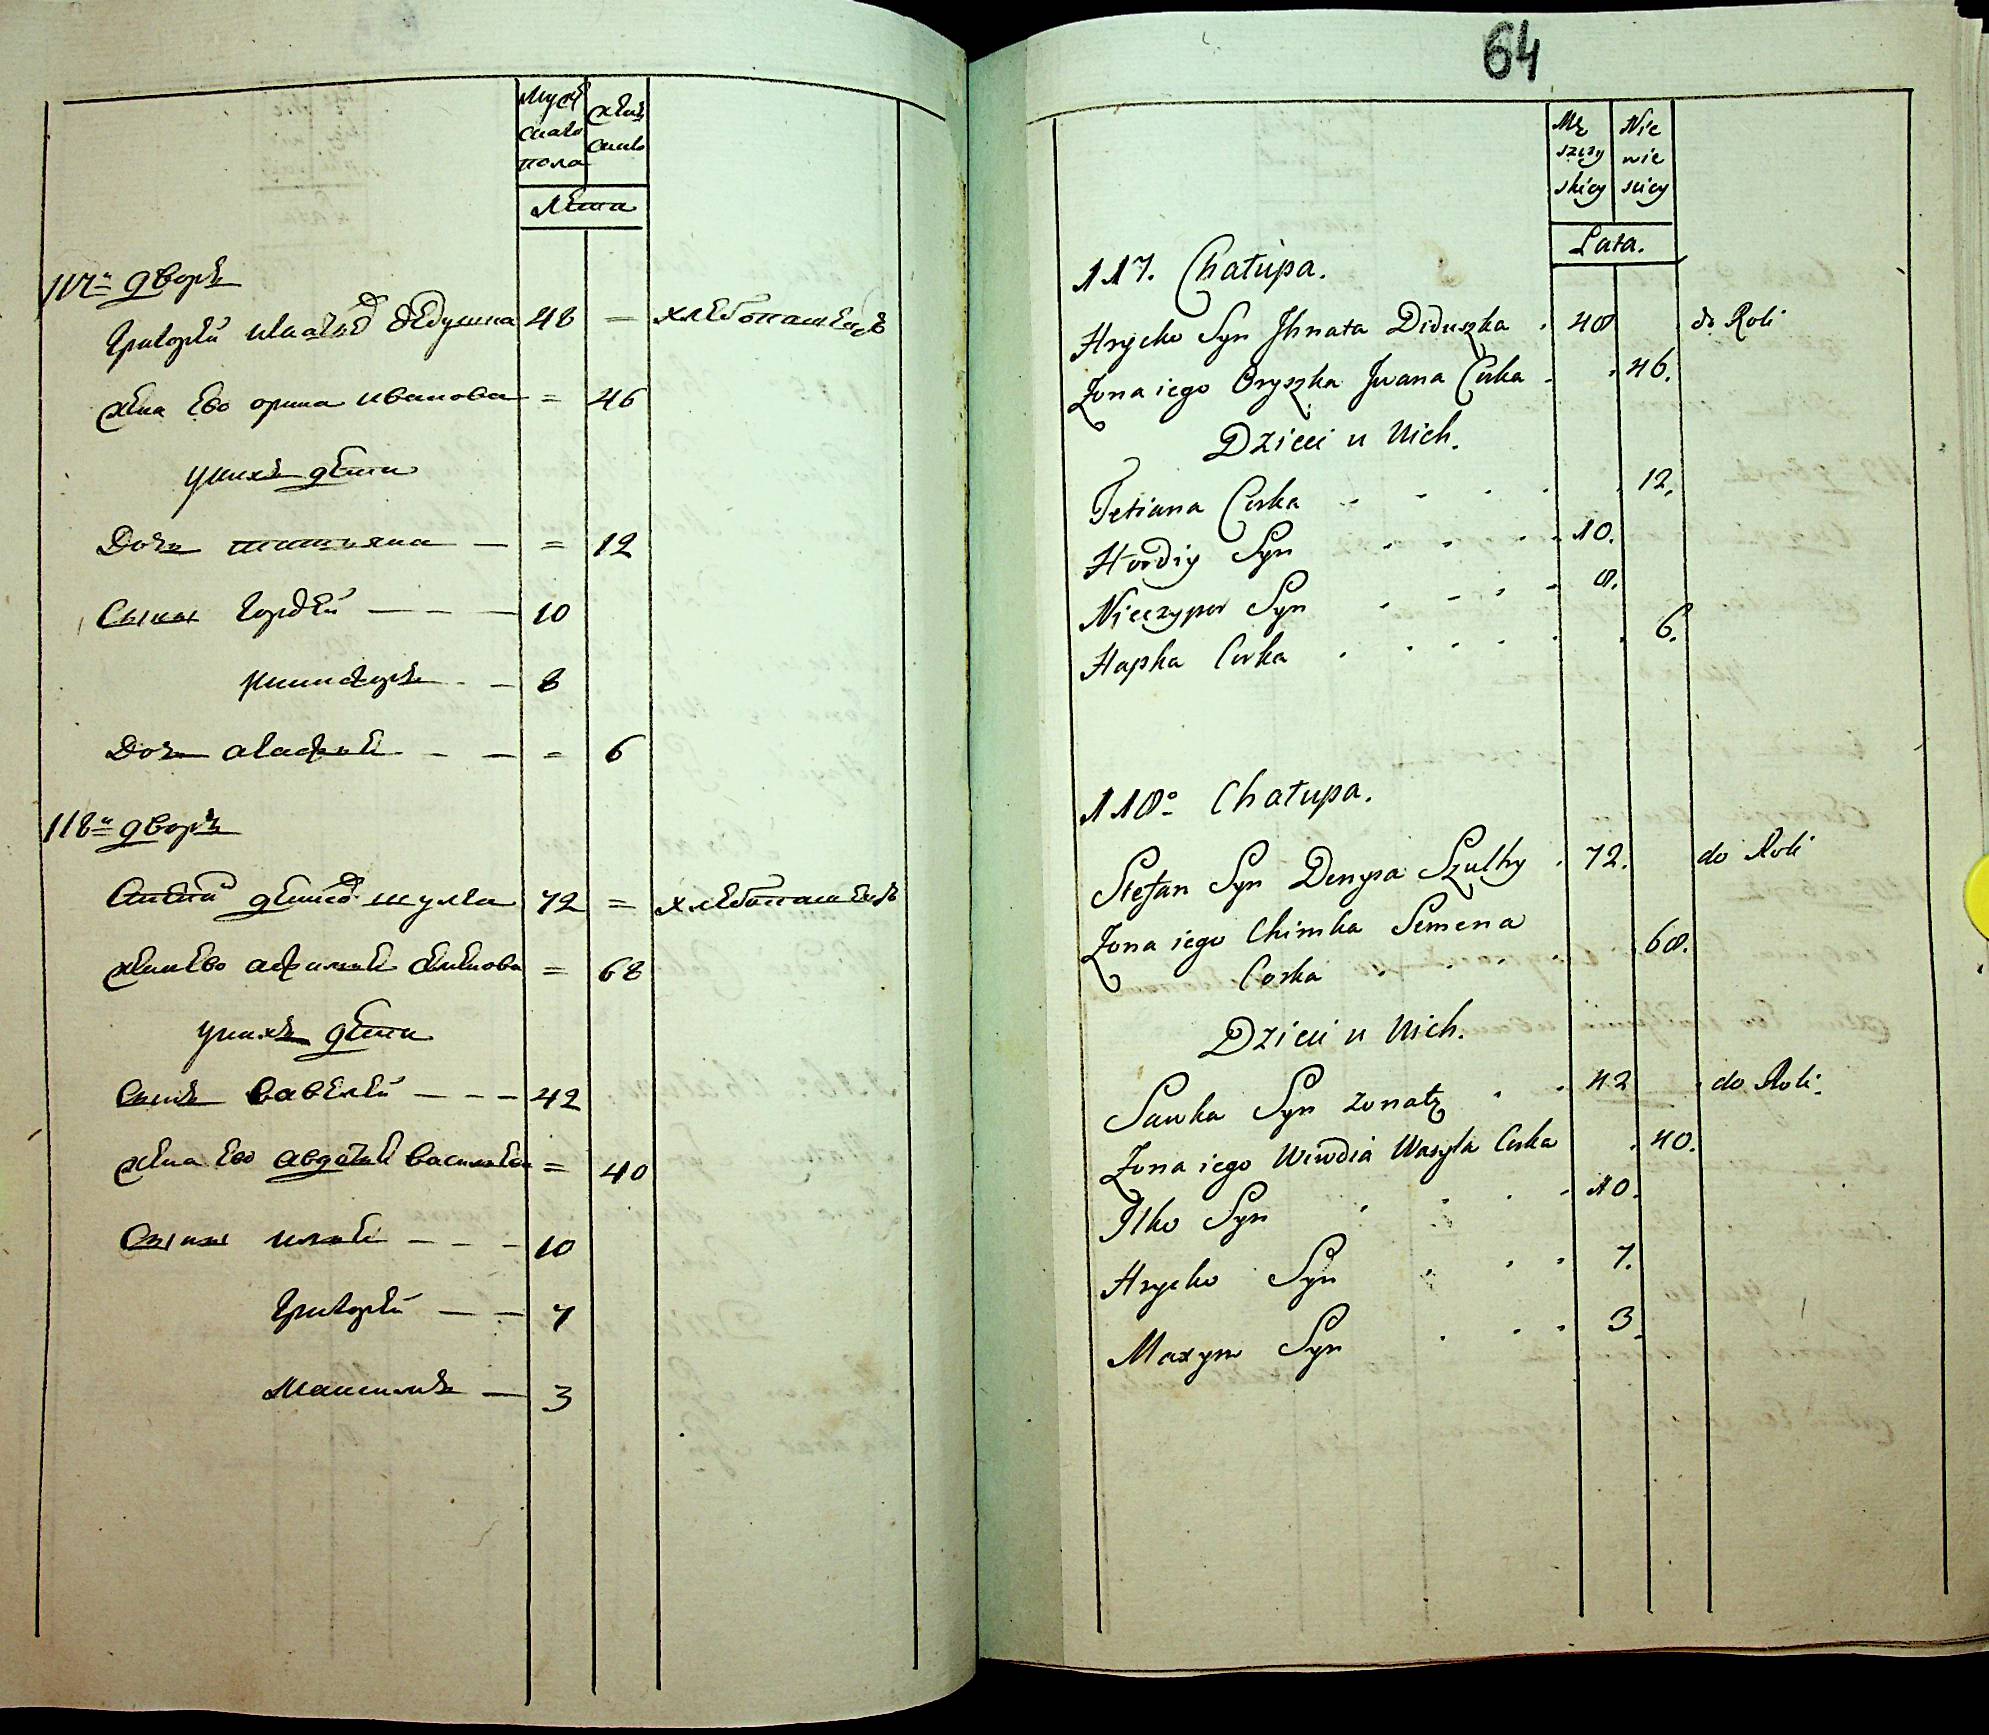 Муск
скаво
пола
женс
скаво
Лета
117й дворъ
Григорей игнатовъ дедушка 48 = хлебопашецъ
жена ево орина иванова = 46
у нихъ дети
Дочь татьяна — = 12
Сыны гордей — — — 10
ничипоръ — — 8
Дочь агафия — — = 6
118й дворъ
Стефанъ денисовъ шулка 72 = хлебопашецъ
жена ево афимия семенова = 68
у нихъ дети
Сынъ савелей — — — 42
жена ево авдотия василева = 40
Сыны илья — — — 10
Григорей — — 7
Максимъ — 3
64
Mę
szczy
skiey
Nie
wie
sciey
Lata.
117. Chałupa.
Hrycko Syn Jhnata Diduszka . 48 do Roli
Zona iego Oryszka Jwana Corka . . 46.
Dzieci u Nich.
Tetiana Corka . . . . . 12.
Hordiy Syn . . . . 10.
Nieczypor Syn . . . . 8.
Hapka Corka . . . . . 6.
118o Chałupa.
Stefan Syn Denysa Szulky . 72. do Roli
Zona iego Chimka Semena
Corka . . . . 68.
Dzieci u Nich.
Sawka Syn zonaty . . 42 . do Roli.
Zona iego Wiwdia Wasyla Corka . 40.
Ilko Syn . . . . 10.
Hrycko Syn . . . 7.
Maxym Syn . . . 3.